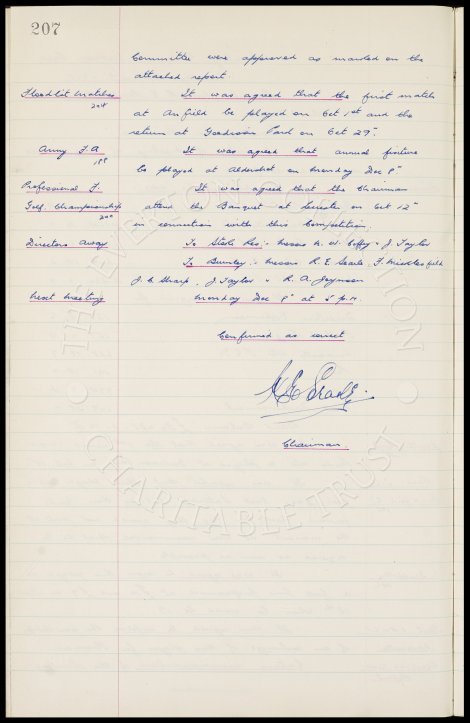 207
Committee were approved as marked on the
attached report
Floodlit Matches It was agreed that the first match
208 at Anfield be played on Oct 1st and the
return at Goodison Park on Oct 29th.
Army F.A. It was agreed that annual fixture
be played at Aldershot on Monday Dec 8th
Professional F. It was agreed that the Chairman
Golf Championship attend the Banquet at Leicester on Oct 12th
in connection with this Competition.
Directors Away To Stoke Res:- Messrs W. Coffey & J Taylor
To Burnley:- Messrs R. E. Searle, F. Micklesfield
J. C. Sharp, J Taylor & R. A. Joynson
Next Meeting Monday Dec 8th at 5 P.M.
Confirmed as correct
Chairman
THE EVERTON COLLECTION
CHARITABLE TRUST